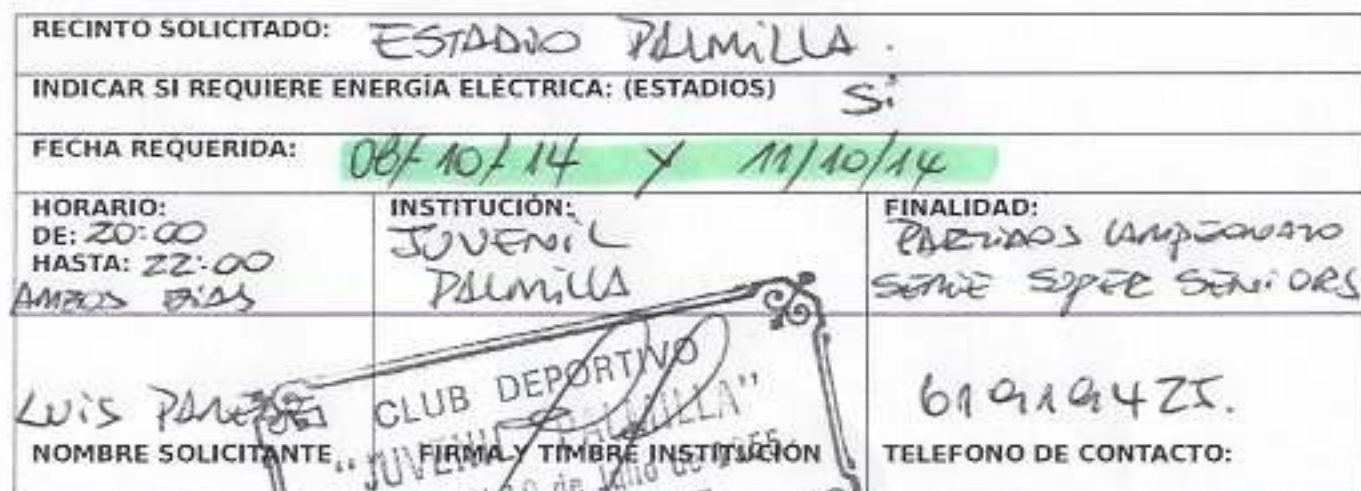 RECINTO SOLICITADO: ESTADIO PALMILLA.
INDICAR SI REQUIERE ENERGÍA ELÉCTRICA: (ESTADIOS) Si
FECHA REQUERIDA: 08/10/14 Y 11/10/14
HORARIO:
DE: 20:00
HASTA: 22:00
AMBOS DIAS
INSTITUCIÓN:
JUVENIL
PALMILLA
FINALIDAD:
PARTIDOS CAMPEONATO
SERIE SUPER SENIORS
LUIS
NOMBRE SOLICITANTE
CLUB DEPORTIVO
"JUVENIL PALMILLA"
de Julio de 1955
FIRMA Y TIMBRE INSTITUCIÓN
61919425.
TELEFONO DE CONTACTO: